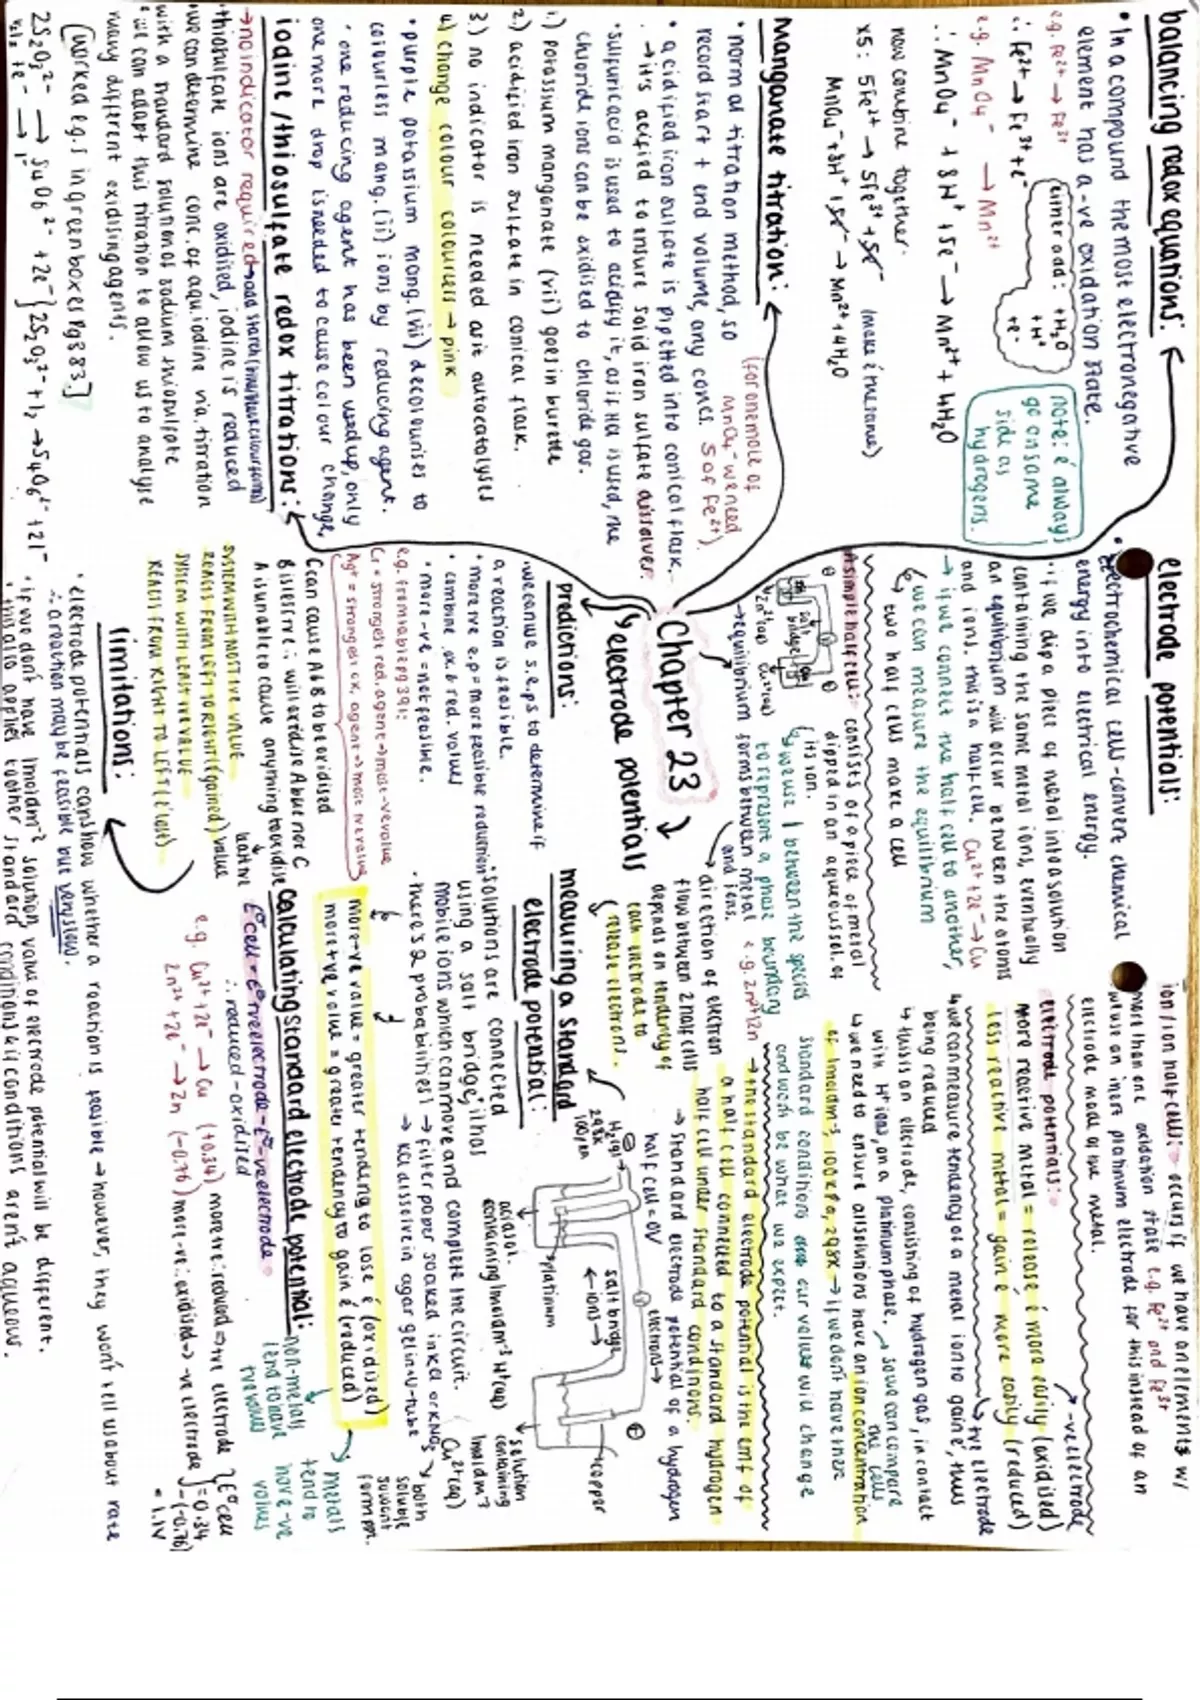 balancing redox equations:
• In a compound the most electronegative
element has a -ve oxidation state.
e.g. Fe²⁺ → Fe³⁺
∴ Fe²⁺ → Fe³⁺ + e⁻
either add: +H₂O
+H⁺
+e⁻
e.g. MnO₄⁻ → Mn²⁺
∴ MnO₄⁻ + 8H⁺ + 5e⁻ → Mn²⁺ + 4H₂O
note: é always
go on same
side as
hydrogens.
now combine together.
x5: 5Fe²⁺ → 5Fe³⁺ + 5e⁻ (make é the same)
MnO₄⁻ + 8H⁺ + 5e⁻ → Mn²⁺ + 4H₂O
Manganate titration:
• normal titration method, so
record start + end volume, any concs.
(for one mole of
MnO₄⁻ we need
5 of Fe²⁺)
• acidified iron sulfate is pipetted into conical flask.
→ it's acified to ensure solid iron sulfate dissolves.
• sulfuric acid is used to acidify it, as if HCl is used, the
chloride ions can be oxidised to chloride gas.
1.) potassium manganate (vii) goes in burette
2.) acidified iron sulfate in conical flask.
3.) no indicator is needed as it autocatalyses
4) change colour colourless → pink
• purple potassium mang. (vii) decolourises to
colourless mang. (ii) ions by reducing agent.
• one reducing agent has been used up, only
one more drop is needed to cause colour change,
iodine / thiosulfate redox titrations:
→ no indicator required
• thiosulfate ions are oxidised, iodine is reduced
• we can determine conc. of aqu. iodine via. titration
with a standard solution of sodium thiosulfate
• we can adapt this titration to allow us to analyse
many different oxidising agents.
(worked e.g.s in green boxes pg 383.]
2S₂O₃²⁻ → S₄O₆²⁻ + 2e⁻ } 2S₂O₃²⁻ + I₂ → S₄O₆²⁻ + 2I⁻
Chapter 23
electrode potentials
electrode potentials:
• Electrochemical cells - convert chemical
energy into electrical energy.
• if we dip a piece of metal into a solution
containing the same metal ions, eventually
an equilibrium will occur between the atoms
and ions. this is a half cell. Cu²⁺ + 2e⁻ → Cu
→ if we connect two half cell to another,
we can measure the equilibrium
↳ two half cells make a cell
A simple half cell: consists of a piece of metal
dipped in an aqueous sol. of
its ion.
salt
bridge
Zn²⁺(aq) Cu²⁺(aq)
↳ we use | between the species
to represent a phase boundary
→ equilibrium forms between metal e.g. Zn²⁺|Zn
and ions.
→ direction of electron
flow between 2 half cells
depends on tendency of
each electrode to
release electrons.
ion/ion half cells: occurs if we have an element w/
more than one oxidation state e.g. Fe²⁺ and Fe³⁺
we use an inert platinum electrode for this instead of an
electrode made of the metal.
electrode potentials:
→ -ve electrode
more reactive metal = release é more easily (oxidised)
less reactive metal = gain é more easily (reduced)
→ +ve electrode
↳ we can measure tendency of a metal ion to gain é, thus
being reduced
↳ this is an electrode, consisting of hydrogen gas, in contact
with H⁺ ions, on a platinum phase. → so we can compare
the cells
↳ we need to ensure all solutions have an ion concentration
of 1moldm⁻³, 100kPa, 298K → if we don't have these
standard conditions our values will change
and won't be what we expect.
→ the standard electrode potential is the emf of
a half cell connected to a standard hydrogen
half cell under standard conditions.
→ standard electrode potential of a hydrogen
half cell = 0V
Predictions:
• we can use s.e.ps to determine if
a reaction is feasible.
• more +ve e.p = more feasible reduction
• combine ox. & red. values
• more -ve = not feasible.
e.g. from table pg 391:
Cr = strongest red. agent → most -ve value
Ag⁺ = strongest ox. agent → most +ve value
C can cause A & B to be oxidised
A is unable to cause anything to oxidise
SYSTEM WITH MOST +VE VALUE
REACTS FROM LEFT TO RIGHT (é gained)
SYSTEM WITH LEAST +VE VALUE
REACTS FROM RIGHT TO LEFT (é lost)
measuring a standard
electrode potential:
H₂(g)
298K
100kPa
electrons →
salt bridge
← ions →
platinum
copper
acid sol.
containing 1moldm⁻³ H⁺(aq)
solution
containing
1moldm⁻³
Cu²⁺(aq)
• solutions are connected
using a salt bridge, it has
mobile ions which can move and complete the circuit.
• there's 2 probabilities → filter paper soaked in KCl or KNO₃
→ KCl dissolve in agar gel in u-tube
both
soluble
form ppt.
more -ve value = greater tending to lose é (oxidised)
more +ve value = greater tendency to gain é (reduced)
→ metals
tend to
have -ve
values
non-metals
tend to have
+ve values
calculating standard electrode potential:
E°cell = E°+ve electrode - E°-ve electrode
∴ reduced - oxidised
e.g. Cu²⁺ + 2e⁻ → Cu (+0.34) more +ve ∴ reduced → +ve electrode
Zn²⁺ + 2e⁻ → Zn (-0.76) more -ve ∴ oxidised → -ve electrode
E°cell
= 0.34
-(-0.76)
= 1.1V
limitations:
• electrode potentials can show whether a reaction is feasible → however, they won't tell us about rate
∴ a reaction may be feasible but very slow.
• if we don't have 1moldm⁻³ solution, value of electrode potential will be different.
• this also applies to other standard conditions & if conditions aren't aqueous.